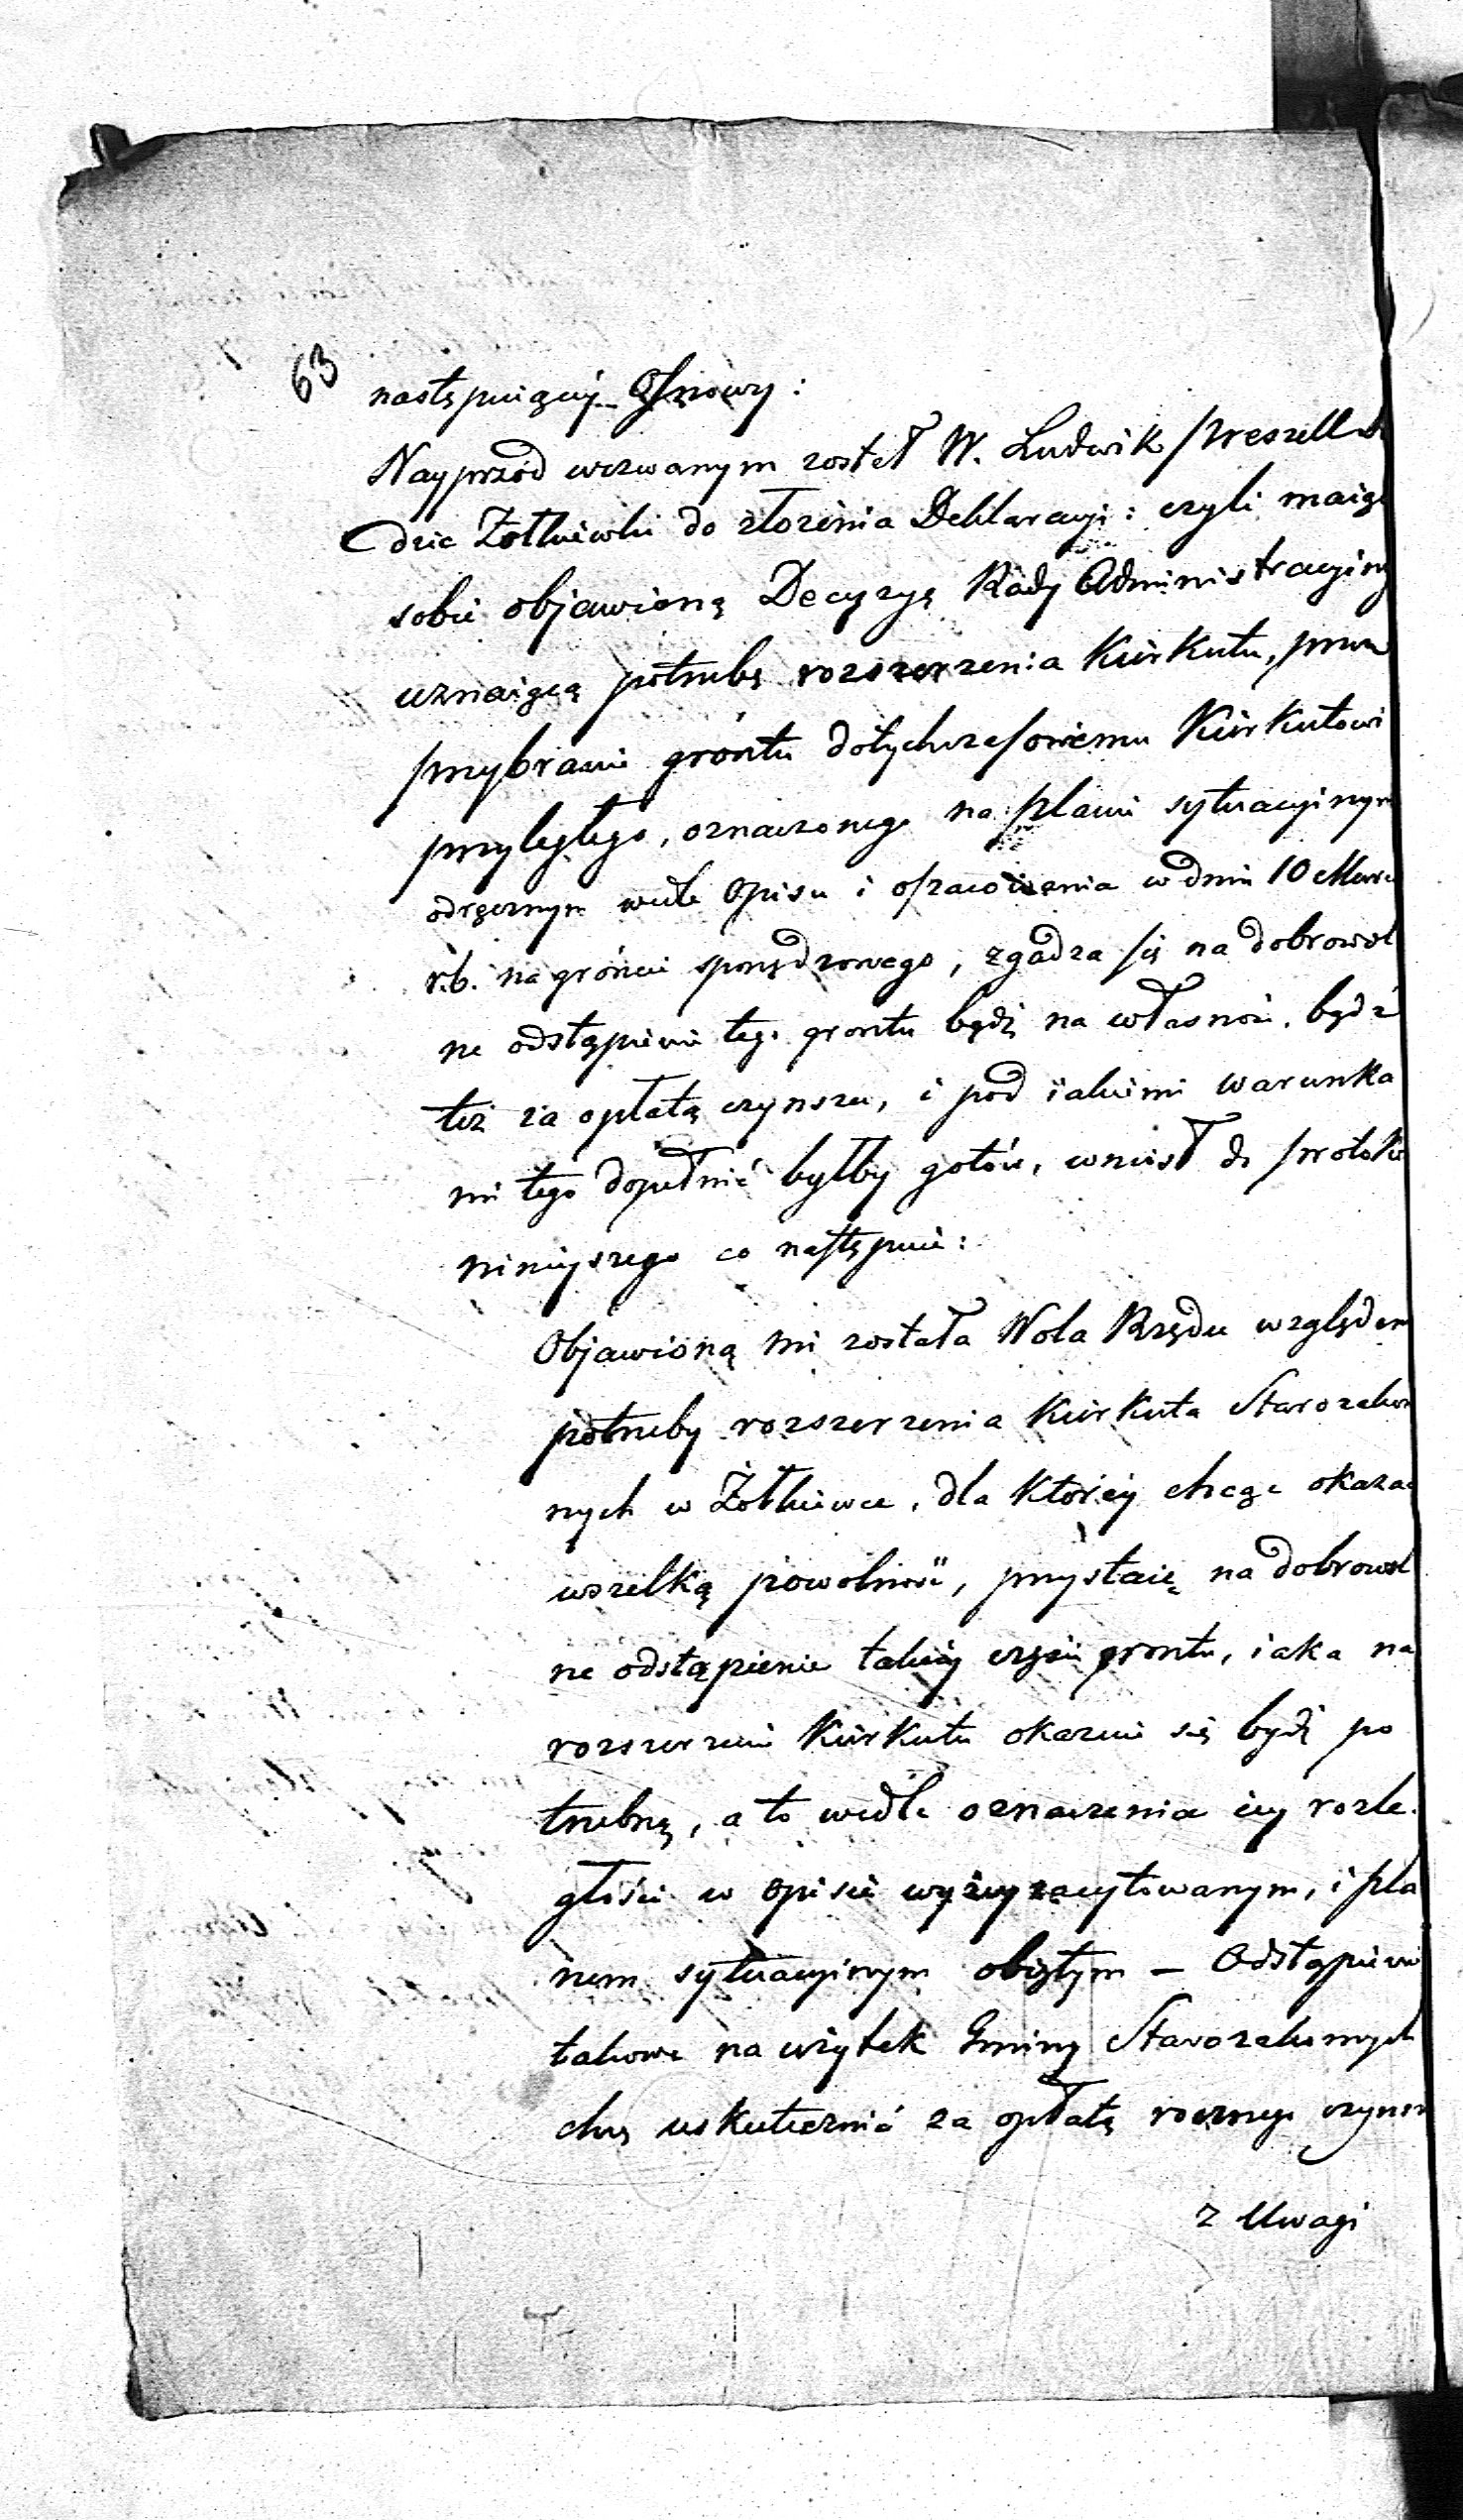 63
następuiącéy Osnowy:
Nayprzód wezwanym został W. Ludwik
dzic Żołkiewki do złożenia Deklaracyi: czyli maiąc
sobie objawioną Decyzyą Rady Administracyiną
uznaiącą potrzebę rozszerzenia Kirkutu, przez
przybranie grontu dotychczasowemu Kirkutowi
przyległego, oznaczonego na planie sytuacyinym
odręcznym wedle opisu i oszacowania w dniu 10 Marca
r.b. na gróncie sporządzonego, zgadza się na dobrowol
ne odstąpienie tego grontu bądź na własność, bądź
też za opłatą czynszu, i pod iakiemi warunka
mi tego dopełnić byłby gotów, wniósł do protokółu
ninieyszego co następuie:
Objawioną mi została Wola Rządu względem
potrzeby rozszerzenia Kirkuta Starozakon
nych w Żołkiewce, dla któréy chcąc okazać
wszelką powolność, przystaię na dobrowol
ne odstąpienie takiéy części grontu, iaka na
rozszerzenie Kirkutu okazuie się bydź po
trzebną, a to wedle oznaczenia iéy rozle
głości w opisie wyżéy zacytowanym, i pla
nem sytuacyinym obiętym — Odstąpienie
takowe na użytek Gminy Starozakonnych
chcę uskutecznić za opłatą rocznego czynszu
z Uwagi